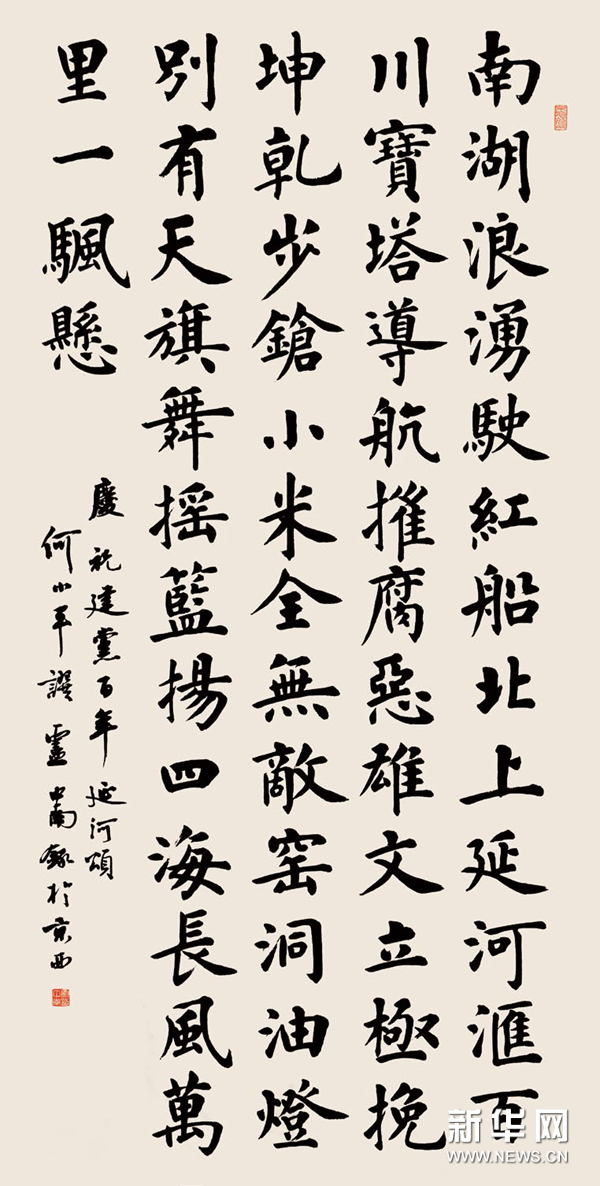 南湖浪湧駛紅船北上延河滙百
川寶塔導航摧腐惡雄文立極挽
坤乾步鎗小米全無敵窑洞油燈
别有天旗舞摇籃揚四海長風萬
里一颿懸
慶祝建黨百年延河頌
何小平譔盧中南錄於京西
新华网
WWW.NEWS.CN